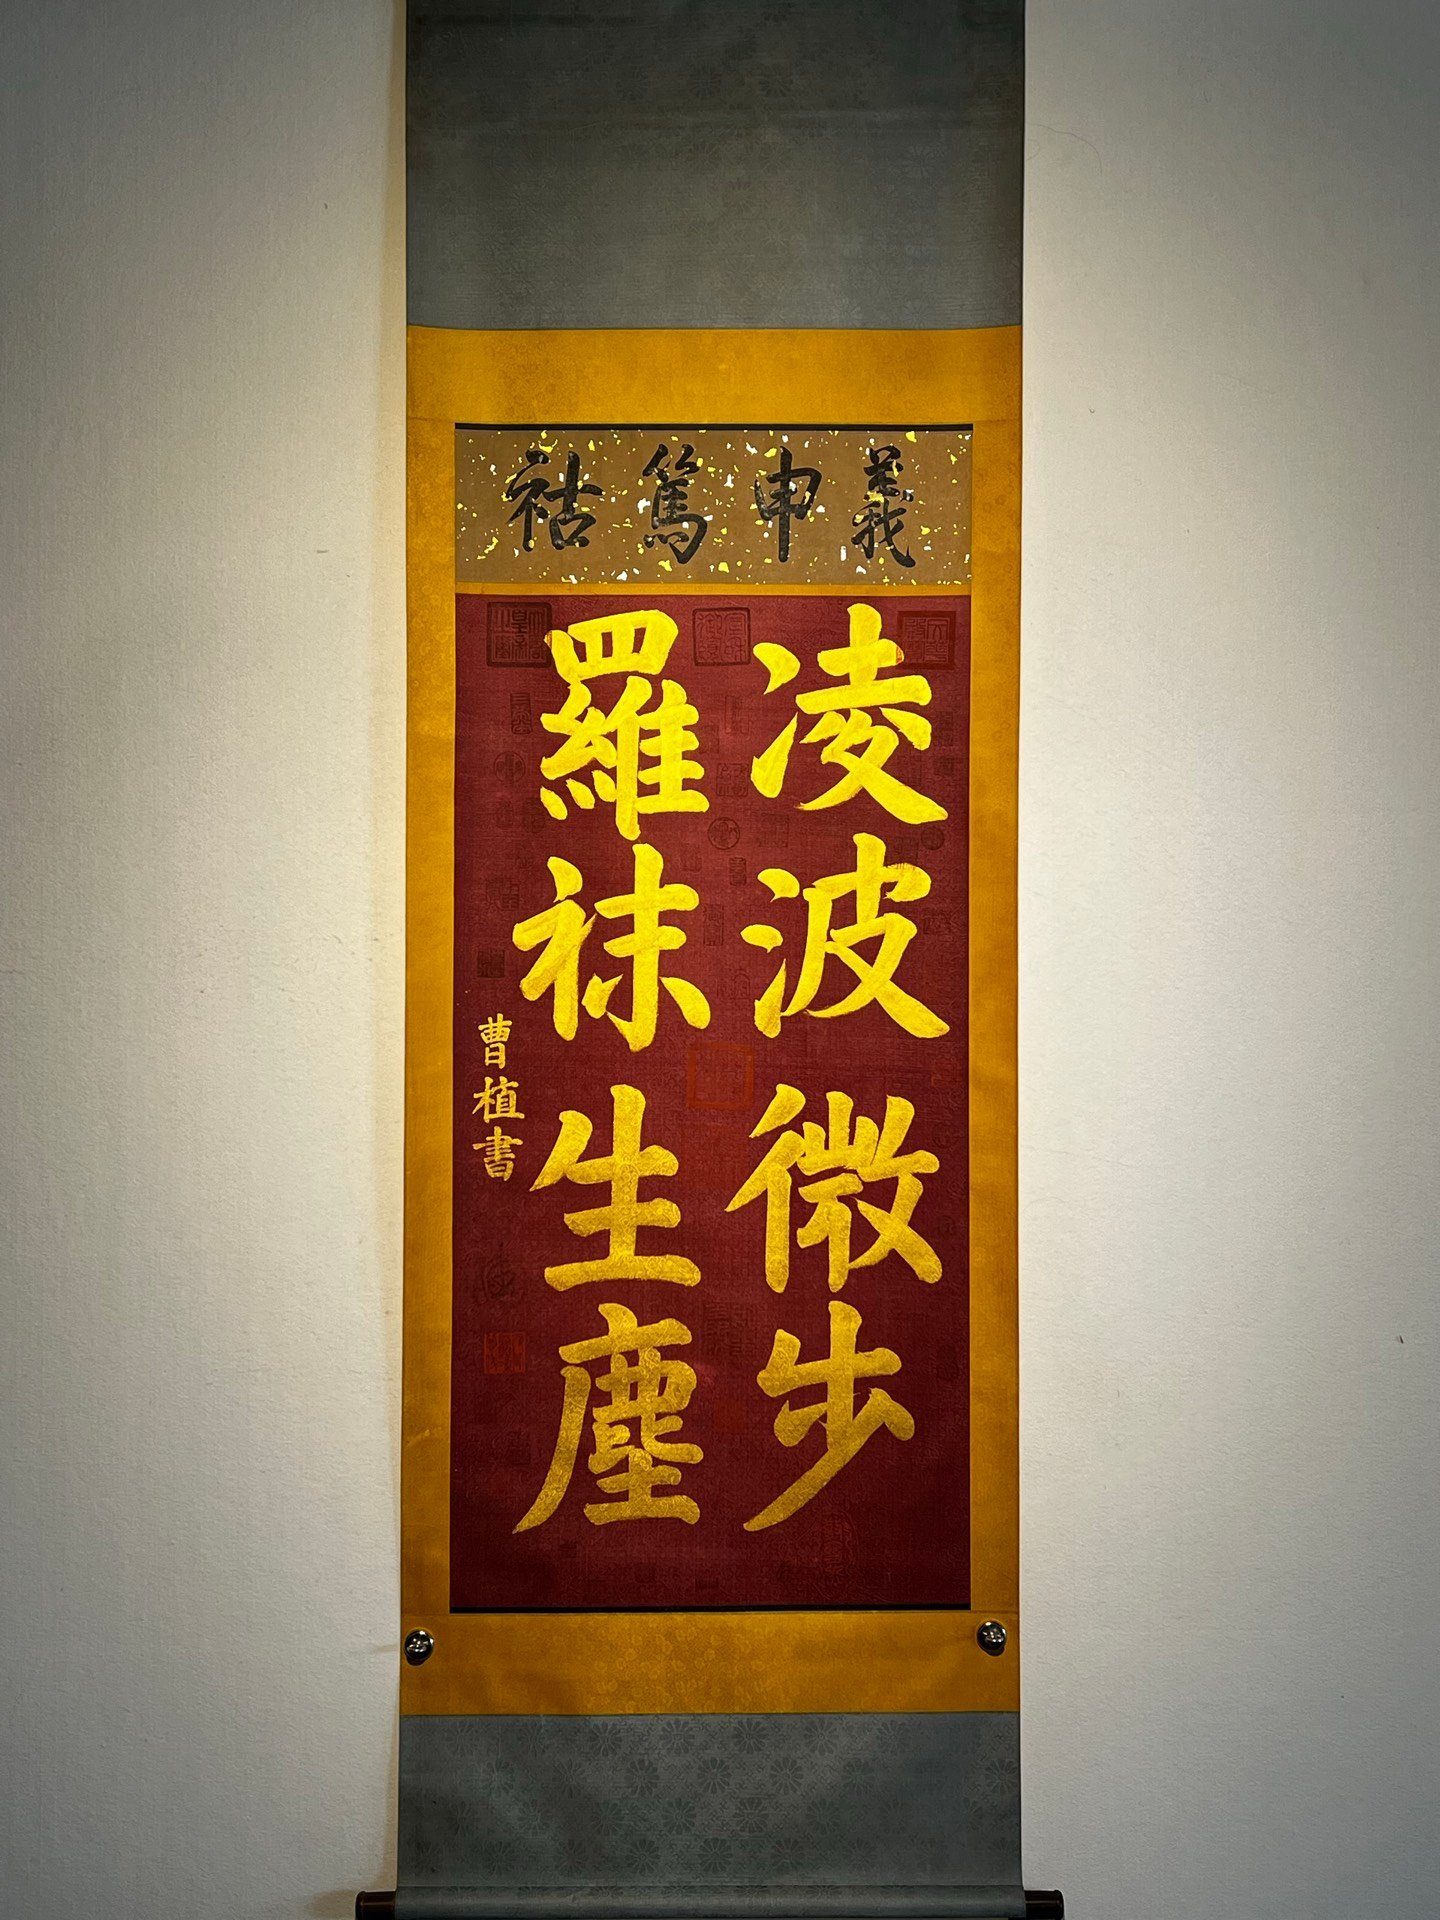 義申篤祜
凌波微步
羅袜生塵
曹植書